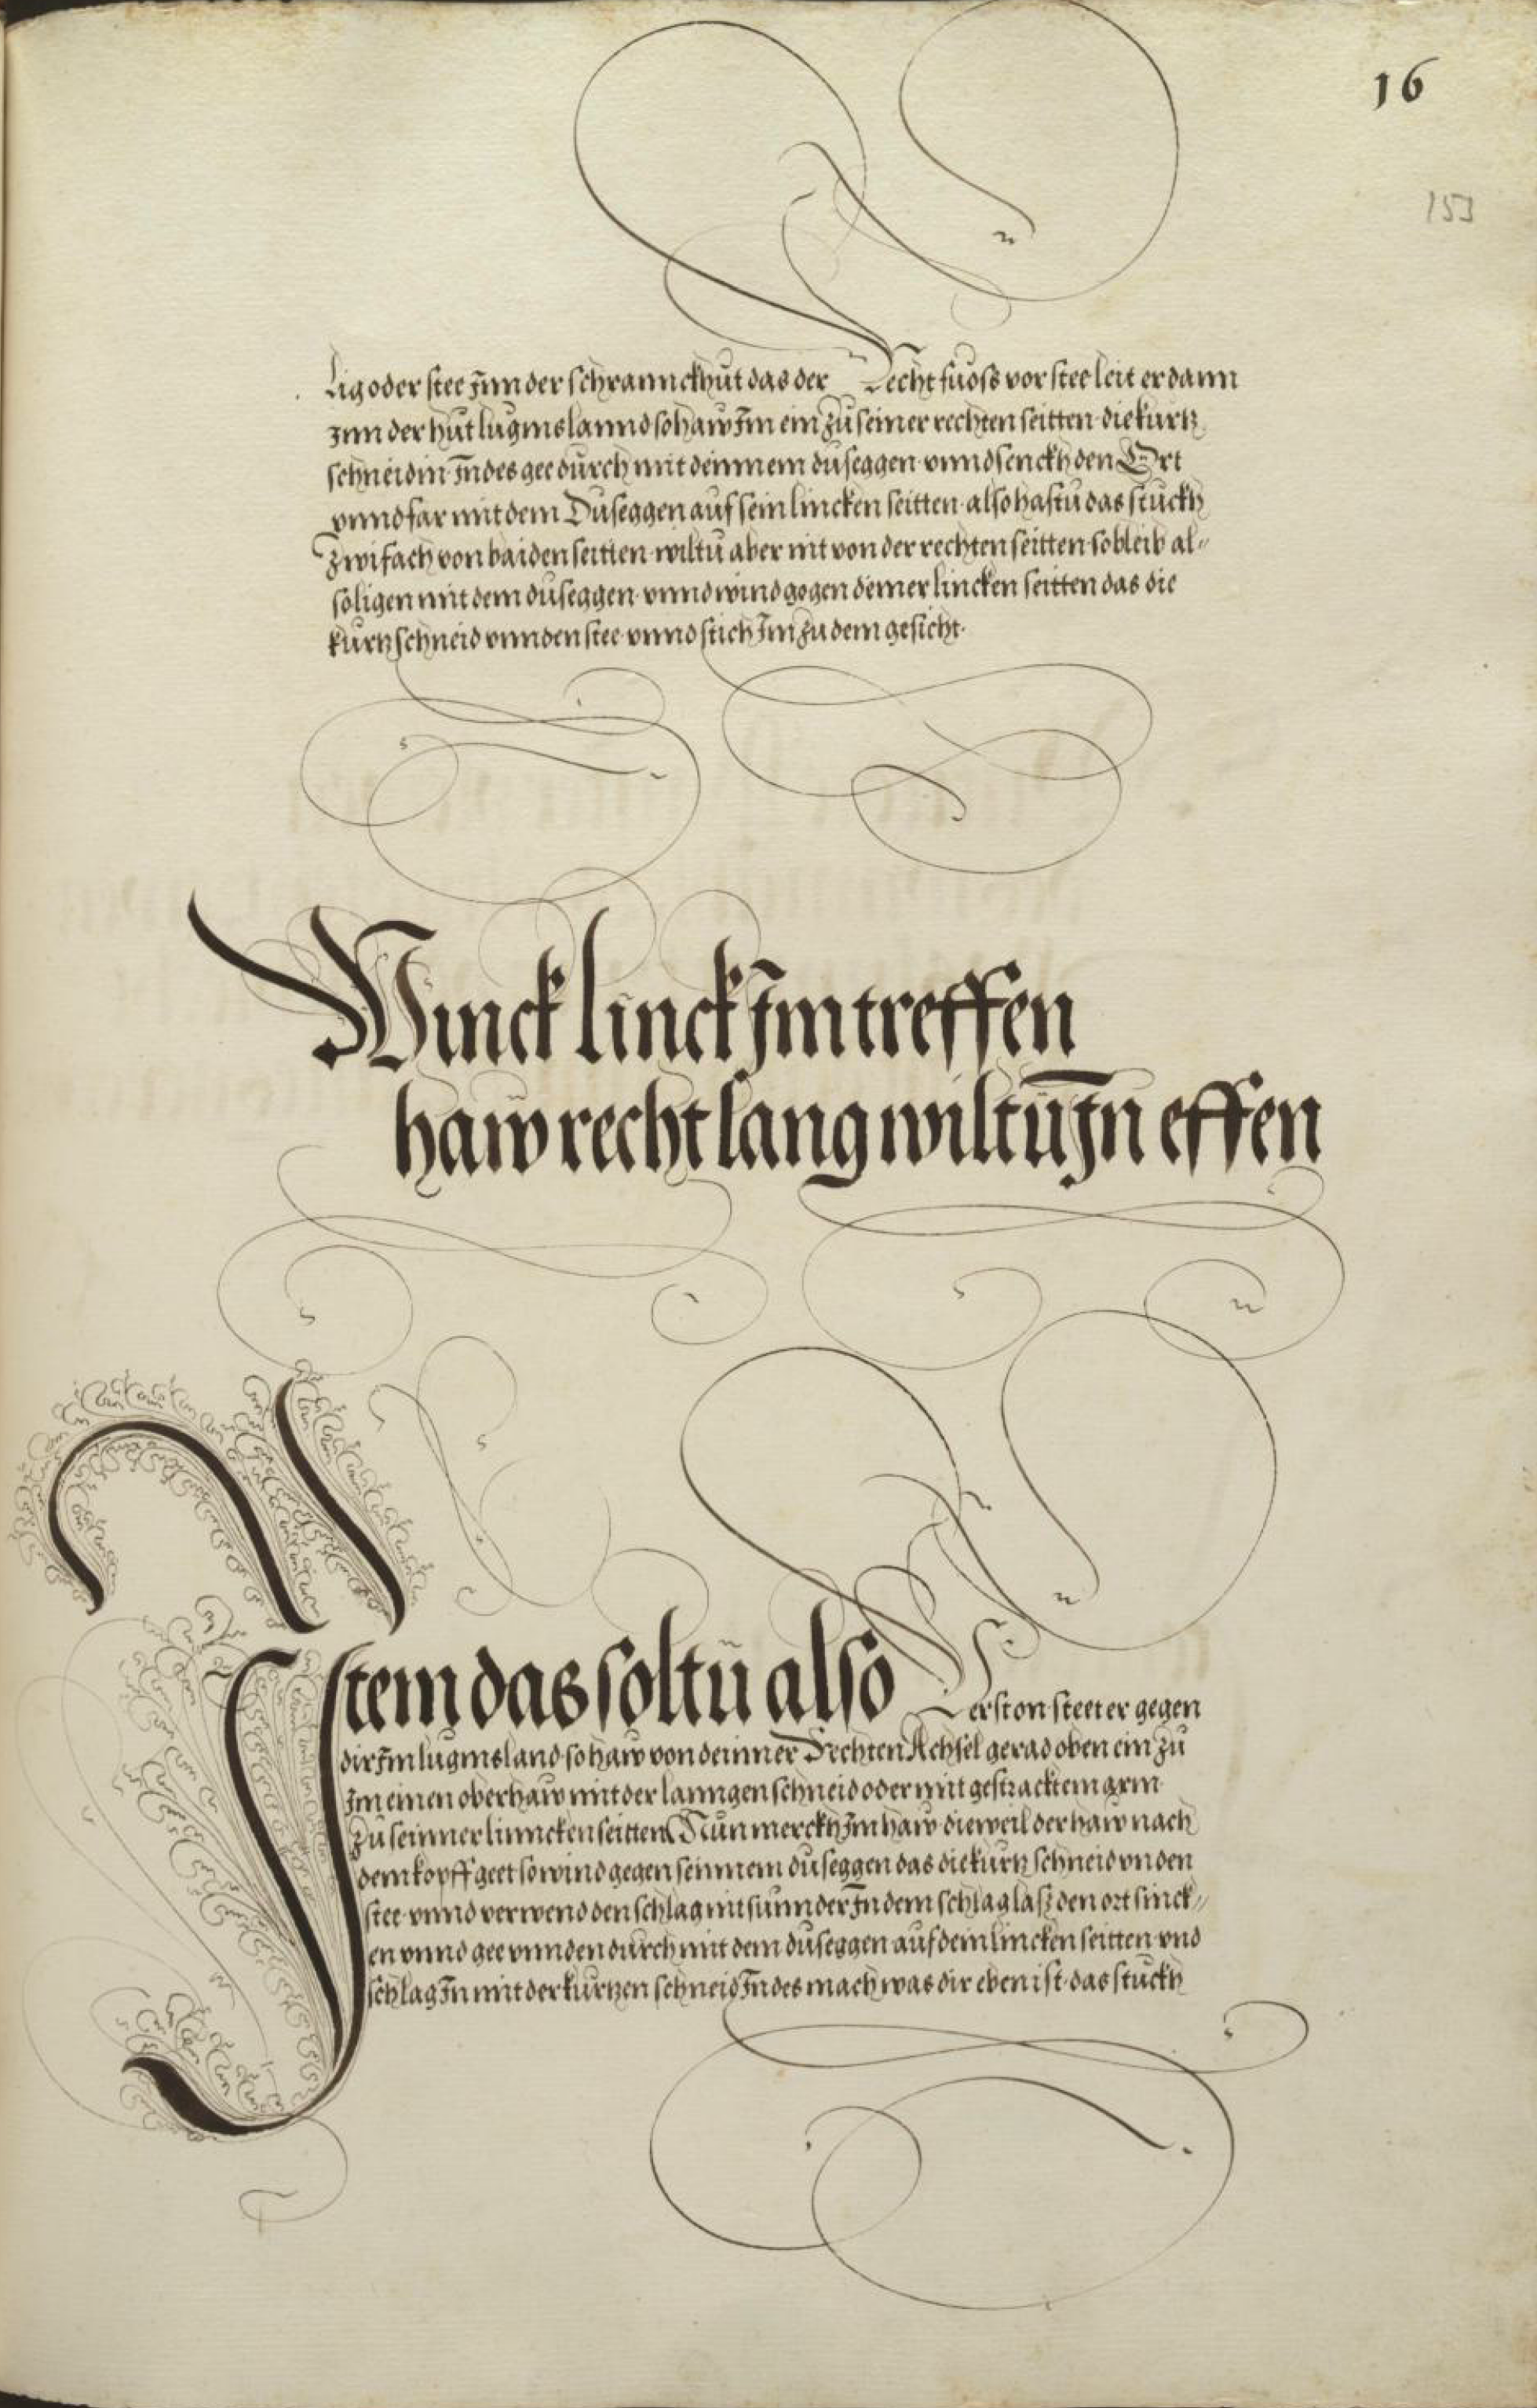 16
153
Lig oder stee Inn der schranckhut das der Recht fuoss vor stee leit er dann
Inn der hut luginslannd so haw Im ein zu seiner rechten seitten die kurtz
schneid in Indes gee durch mit deinnem duseggen vnnd senckh den Ort
vnnd far mit dem Duseggen auf sein lincken seitten also hastu das stuckh
Zwifach von baiden seitten wiltu aber nit von der rechten seitten so bleib al⸗
so ligen mit dem duseggen vnnd wind gegen deiner lincken seitten das die
kurtz schneid vnnden stee vnnd stich Im zu dem gesicht.
Winck linck Im treffen
haw recht lang wiltu In effen
Item das soltu also Verston steet er gegen
dir Im luginsland so haw von deinner Rechten Achsel gerad oben ein zu
Im einen oberhaw mit der lanngen schneid oder mit gestracktem arm
zu seinner linncken seitten Nun merckh Im haw dieweil der haw nach
dem kopff geet so wind gegen seinnem duseggen das die kurtz schneid vnden
stee vnnd verwend den schlag nit sunnder In dem schlag lasz den ort sinck⸗
en vnnd gee vnnden durch mit dem duseggen auf dein lincken seitten vnd
schlag In mit der kurtzen schneid Indes mach was dir eben ist das stuckh